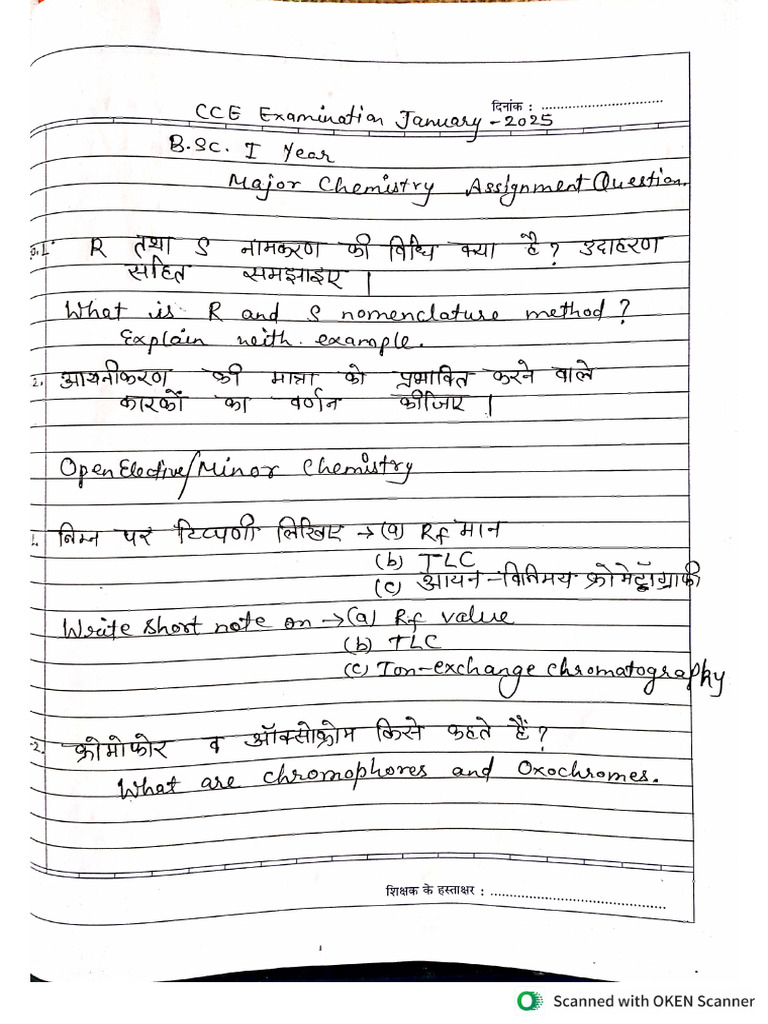 दिनांक : ................................
CCE Examination January - 2025
B.Sc. I Year
Major Chemistry Assignment Question.
R तथा S नामकरण की विधि क्या है? उदाहरण
सहित समझाइए |
What is R and S nomenclature method?
Explain with example.
2. आयनीकरण की मात्रा को प्रभावित करने वाले
कारकों का वर्णन कीजिए |
Open Elective/Minor Chemistry
1. निम्न पर टिप्पणी लिखिए → (a) Rf मान
(b) TLC
(c) आयन-विनिमय क्रोमेटॉग्राफी
Write short note on → (a) Rf value
(b) TLC
(c) Ion-exchange chromatography
2. क्रोमोफोर व ऑक्सोक्रोम किसे कहते हैं?
What are chromophores and Oxochromes.
शिक्षक के हस्ताक्षर : ................................................
Scanned with OKEN Scanner